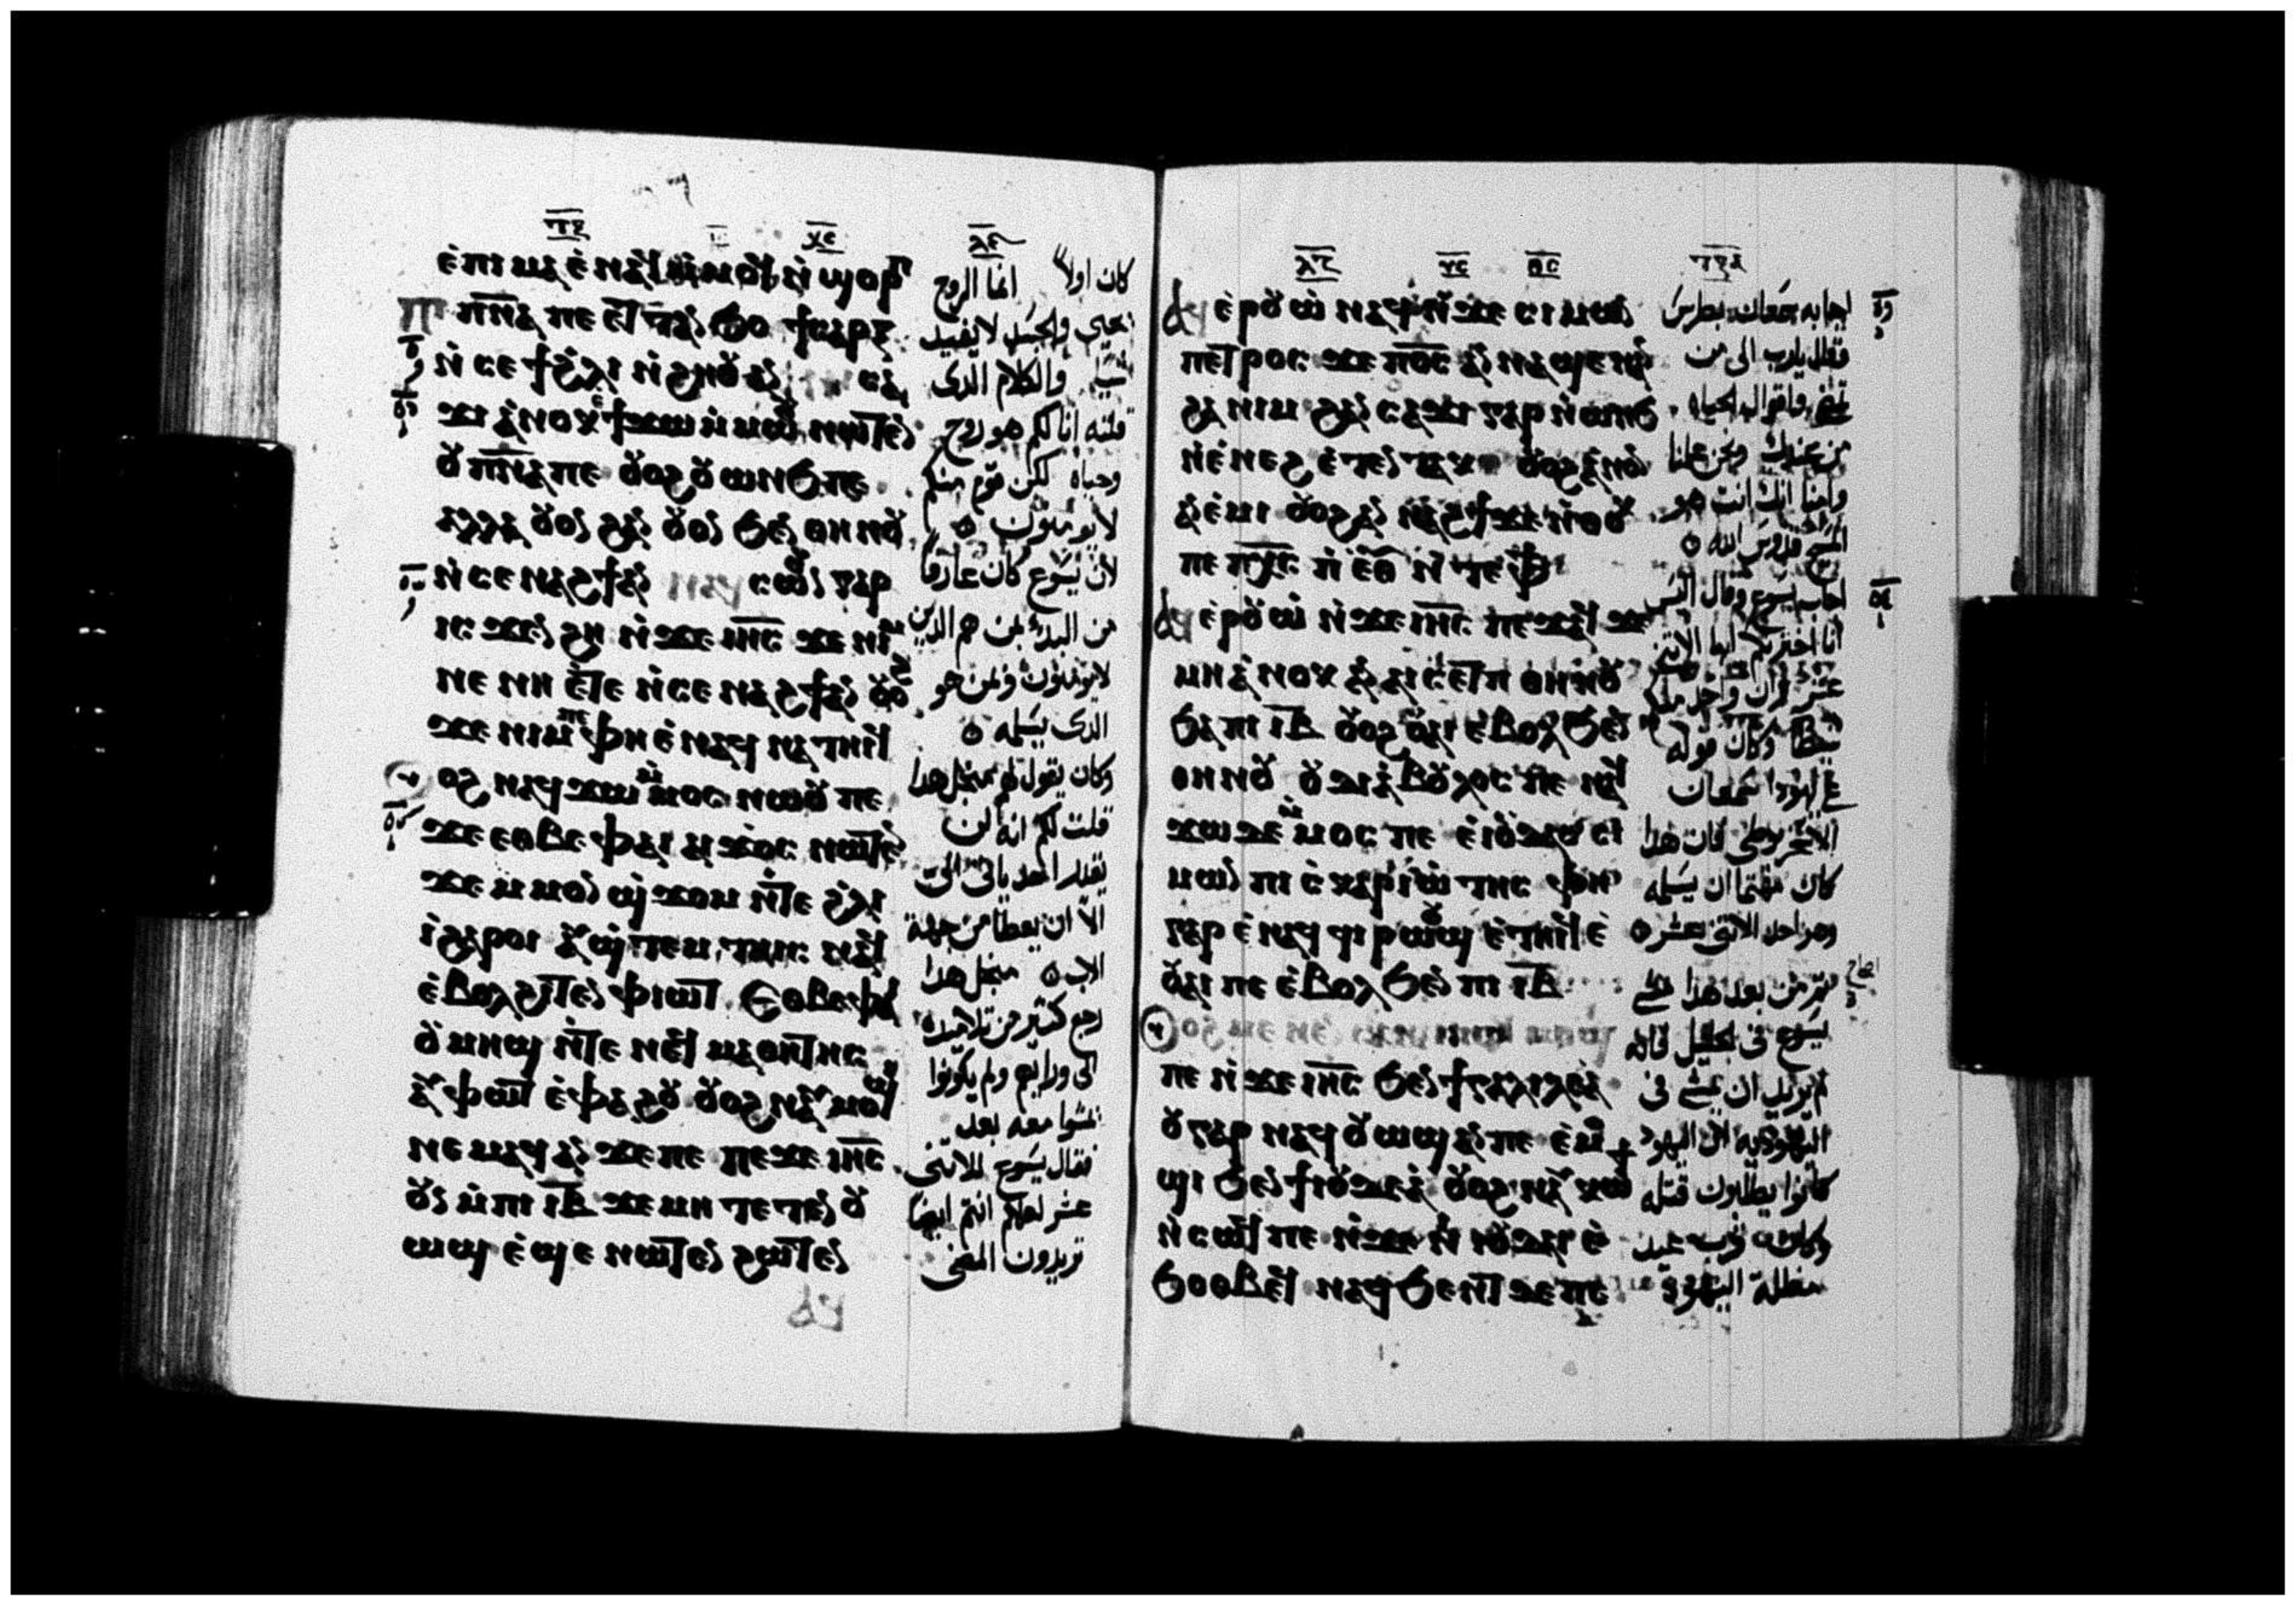 ⲉ̀ⲡⲓ ⲙⲁ ⲉ̀ⲛⲁϥ ⲙ̀ⲙⲟϥ ⲛ̀ϣⲟⲣⲡ
ⲡⲓ ⲡⲛ̅ⲁ̅ ⲡⲉ ⲉⲧ ⲧⲁⲛϧⲟ ϯⲥⲁⲣⲝ
ⲛ̀ⲥⲉ ϯϩ̀ⲗⲓ ⲛ̀ϩⲏⲟⲩ ⲁⲛ ⲥⲁ
ϫⲓ ⲁ̀ⲛⲟⲕ ⲉϯϫⲱ ⲙ̀ⲙⲱⲟⲩ ⲛⲱⲧⲉⲛ
ⲟⲩ ⲡⲛ̅ⲁ̅ ⲡⲉ ⲟⲩⲟϩ ⲟⲩ ⲱⲛϧ ⲡⲉ
ⲁⲗⲗⲁ ⲟⲩⲟⲛ ϩⲁⲛ ⲟⲩⲟⲛ ϧⲉⲛ ⲑⲏⲛⲟⲩ
ⲛ̀ⲥⲉ ⲛⲁϩϯ ⲁⲛ ⲛⲁϥ ⲥⲱⲟⲩⲛ ⲅⲁⲣ
ⲓⲥϫⲉⲛ ϩⲏ ⲛ̀ϫⲉ ⲓⲏ̅ⲥ̅ ϫⲉ ⲛⲓⲙ
ⲛⲉ ⲛⲏ ⲉ̀ⲧⲉ ⲛ̀ⲥⲉ ⲛⲁϩϯ ⲁⲛ ⲟⲩⲟϩ
ϫⲉ ⲛⲓⲙ ⲡⲉ ⲫⲏ ⲉ̀ⲛⲁϥ ⲛⲁ ⲧⲏⲓϥ
ⲟⲩⲟϩ ⲛⲁϥ ϫⲱ ⲙ̀ⲙⲟⲥ ⲛⲱⲟⲩ ⲡⲉ
ϫⲉ ⲉⲑⲃⲉ ⲫⲁⲓ ⲁⲓ ϫⲟⲥ ⲛⲱⲧⲉⲛ
ϫⲉ ⲙ̀ⲙⲟⲛ ϣ̀ϫⲟⲙ ⲛ̀ⲧⲉ ϩ̀ⲗⲓ
ⲓ̀ ϩⲁⲣⲟⲓ ⲁⲩ ϣ̀ⲧⲉⲙ ⲧⲏⲓⲥ ⲛⲁϥ
ⲉ̀ⲃⲟⲗ ϩⲓⲧⲉⲛ ⲫⲓⲱⲧ ⲉⲑⲃⲉ ⲫⲁⲓ
ⲟⲩ ⲙⲏϣ ⲛ̀ⲧⲉ ⲛⲉϥ ⲙⲁⲑⲏⲧⲏⲥ
ⲁⲩ ⲫⲱⲧ ⲉ̀ⲫⲁϩⲟⲩ ⲟⲩⲟϩ ⲛⲁⲩ ⲙⲟϣⲓ
ⲛⲉⲙⲁϥ ⲁⲛ ϫⲉ ⲡⲉ ⲡⲉϫⲉ ⲓⲏ̅ⲥ̅
ⲟⲩⲛ ⲙ̀ⲡⲓ ⲓ̅ⲃ̅ ϫⲉ ⲙⲏ ⲧⲉⲧⲉⲛ ⲟⲩ
ⲱϣ ⲉ̀ϣⲉ ⲛⲱⲧⲉⲛ ϩⲱⲧⲉⲛ
كان اولا انما الروح
يحيي والجسد لا يفيد
شيا والكلام الدى
قلته انا لكم هو روح
وحياه لكن قوم منكم
لا يومنون
لان يسوع كان عارفا
من البدء بمن هم الذين
لا يومنون ومن هو
الدى يسلمه
وكان يقول لهم منجل هدا
قلت لكم انه لن
يقدر احد ياتى الى
الا ان يعطا من جهة
الاب منجل هدا
رجع كثير من تلاميده
الى ورايهم ولم يكونوا
يمشوا معه بعد
فقال يسوع للاثنى
عشر لعلكم انتم ايضا
تريدون المضى
ⲁϥ ⲉ̀ⲣⲟⲩⲱ̀ ⲛⲁϥ ⲛ̀ϫⲉ ⲥⲓⲙⲱⲛ
ⲡⲉⲧⲣⲟⲥ ϫⲉ ⲡⲟ̅ⲥ̅ ⲁⲛ ⲛⲁϣⲉ ⲛⲁⲛ
ϩⲁ ⲛⲓⲙ ϩⲁⲛ ⲥⲁϫⲓ ⲅⲁⲣ ⲛ̀ⲱⲛϧ
ⲛ̀ⲉ̀ⲛⲉϩ ⲉ̀ⲧⲉⲛ ⲧⲁⲕ ⲟⲩⲟϩ ⲁ̀ⲛⲟⲛ
ⲁⲛ ⲉ̀ⲙⲓ ⲟⲩⲟϩ ⲁⲛ ⲛⲁϩϯ ϫⲉ ⲛ̀ⲑⲟⲕ
ⲡⲉ ⲡⲭ̅ⲥ̅ ⲡ̀ⲉ̅ⲑ̅ⲩ̅ ⲛ̀ⲧⲉ ⲫϯ
ⲁϥ ⲉ̀ⲣⲟⲩⲱ̀ ⲛ̀ϫⲉ ⲓⲏ̅ⲥ̅ ⲡⲉϫⲁϥ ϫⲉ
ⲙⲏ ⲁ̀ⲛⲟⲕ ⲁⲛ ⲁⲓ ⲥⲉⲧⲡ ⲑⲏⲛⲟⲩ
ϧⲁ ⲡⲓ ⲓ̅ⲃ̅ ⲟⲩⲟϩ ⲟⲩⲁⲓ ⲉⲃⲟⲗ ϧⲉⲛ
ⲑⲏⲛⲟⲩ ⲟⲩ ⲇⲓⲁ̀ⲃⲟⲗⲟⲥ ⲡⲉ ⲛⲁϥ
ϫⲱ ⲇⲉ ⲙ̀ⲙⲟⲥ ⲡⲉ ⲉ̀ⲓⲟⲩⲇⲁⲥ ⲥⲓ
ⲙⲱⲛ ⲡⲓ ⲥ̀ⲕⲁⲣⲓⲱ̀ⲧⲏⲥ ⲫⲏ
ⲅⲁⲣ ⲉ̀ⲛⲁϥ ϥⲓ ⲣⲱⲟⲩϣ ⲉ̀ⲧⲏⲓϥ ⲉ̀
ⲟⲩⲁⲓ ⲡⲉ ⲉ̀ⲃⲟⲗ ϧⲉⲛ ⲡⲓ ⲓ̅ⲃ̅
ⲡⲉ ⲛ̀ϫⲉ ⲓⲏ̅ⲥ̅ ϧⲉⲛ ϯⲅⲁⲗⲓⲗⲉⲁ̀
ⲟⲩ ⲅⲁⲣ ⲛⲁϥ ⲟⲩⲱϣ ⲁⲛ ⲡⲉ ⲉ̀ⲙⲟ
ϣⲓ ϧⲉⲛ ϯⲓⲟⲩⲇⲉⲁ̀ ⲟⲩⲟϩ ⲛⲁⲩ ⲕⲱϯ
ⲛ̀ⲥⲱϥ ⲡⲉ ⲛ̀ϫⲉ ⲛⲓ ⲓⲟⲩⲇⲁⲓ ⲉ̀
ϧⲟⲑⲃⲉϥ ⲛⲁϥ ϧⲉⲛⲧ ⲇⲉ ⲡⲉ
اجابه سمعان بطرس
فقال يا رب الى من
نمضى وافوال الحياه
من عندك ونحن علمنا
وامنا انك انت هو
المسيح قدوس الله
اجاب يسوع وقال اليس
انا اخترتكم ايها الاثنى
عشر وان واحد منكم
شيطانا وكان قوله
على يهودا سمعان
الاسخريوطى فان هدا
كان مهتما ان يسلمه
وهو احد الاثنى عشر
ثم من بعد هدا مشى
يسوع فى الجليل فانه
لم يريد ان يمشى فى
اليهوديه لان اليهود
كانوا يطلبون قتله
وكان قرب عيد
مظلة اليهود